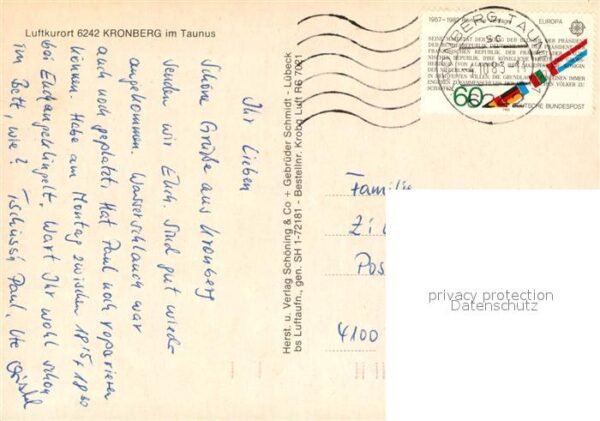 Luftkurort 6242 KRONBERG im Taunus
Ihr Lieben
Schöne Grüße aus Kronberg
senden wir Euch. Sind gut wieder
angekommen. Wasserschlauch war
auch noch geplatzt. Hat Paul noch reparieren
können. Habe am Montag zwischen 18 15 + 18 30
bei Euch angeklingelt. Wart Ihr wohl schon
im Bett, wie? Tschüssi Paul, Ute
Herst. u. Verlag Schöning & Co + Gebrüder Schmidt - Lübeck
bs Luftaufn., gen. SH 1-72181 - Bestellnr. Krobg Luft R6 7021
EUROPA
60
DEUTSCHE BUNDESPOST
Familie
Pos
4100
privacy protection
Datenschutz